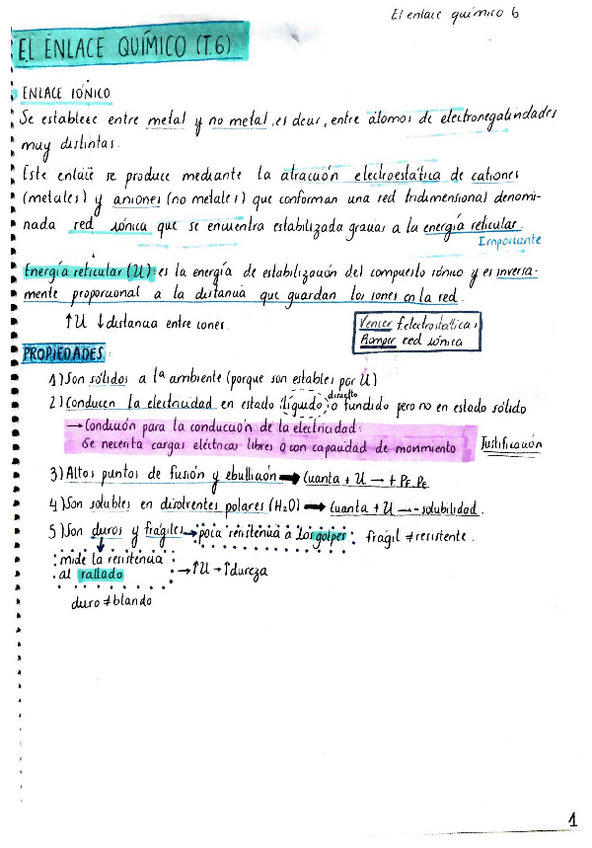 El enlace químico 6
EL ENLACE QUÍMICO (T.6)
ENLACE IÓNICO
Se establece entre metal y no metal, es decir, entre átomos de electronegatividades
muy distintas.
Este enlace se produce mediante la atracción electrostática de cationes
(metales) y aniones (no metales) que conforman una red tridimensional denomi-
nada red iónica que se encuentra estabilizada gracias a la energía reticular.
Importante
Energía reticular (U): es la energía de estabilización del compuesto iónico y es inversa-
mente proporcional a la distancia que guardan los iones en la red.
↑U ↓distancia entre iones.
Vencer f.electrostáticas
Romper red iónica
PROPIEDADES:
1) Son sólidos a tª ambiente (porque son estables por U)
2) Conducen la electricidad en estado líquido, o fundido pero no en estado sólido
disuelto
→ Condición para la conducción de la electricidad:
Se necesita cargas eléctricas libres o con capacidad de movimiento
Justificación
3) Altos puntos de fusión y ebullición → Cuanta + U → + PF, PE
4) Son solubles en disolventes polares (H₂O) → Cuanta + U → - solubilidad.
5) Son duros y frágiles → poca resistencia a los golpes. frágil ≠ resistente.
mide la resistencia
al rallado → ↑U → ↑dureza
duro ≠ blando
1